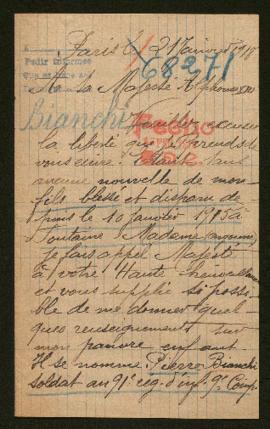 Paris le 21 Janvier 1918
Pedir informes
68271
A sa Majesté Alphonse XIII
Bianchi
Veuillez excuser
Fecho
la liberté que je prends de
vous écrire. Etant sans
aucune nouvelle de mon
fils blessé et disparu de-
puis le 10 janvier 1915 à
Fontaine Madame
je fais appel Majesté
à votre Haute
et vous supplie si possi-
ble de me donner quel-
ques renseignements sur
mon pauvre enfant.
Il se nomme Pierre Bianchi
soldat au 91e reg. d'inf. 9e Comp.